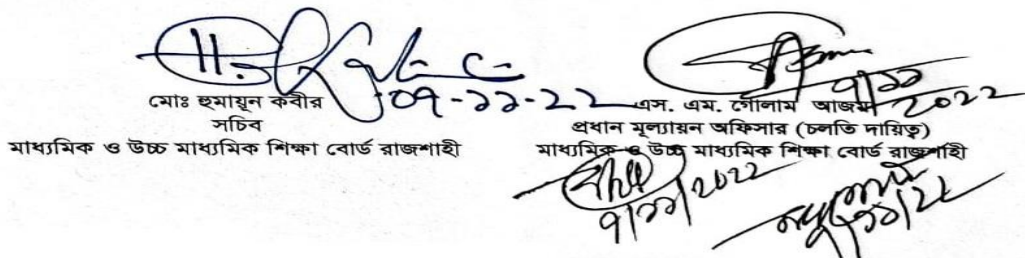 ০৭-১১-২২
মোঃ হুমায়ূন কবীর
সচিব
মাধ্যমিক ও উচ্চ মাধ্যমিক শিক্ষা বোর্ড রাজশাহী
৭/১১/2022
এস. এম. গোলাম আজম
প্রধান মূল্যায়ন অফিসার (চলতি দায়িত্ব)
মাধ্যমিক ও উচ্চ মাধ্যমিক শিক্ষা বোর্ড রাজশাহী
৭/১১/2022